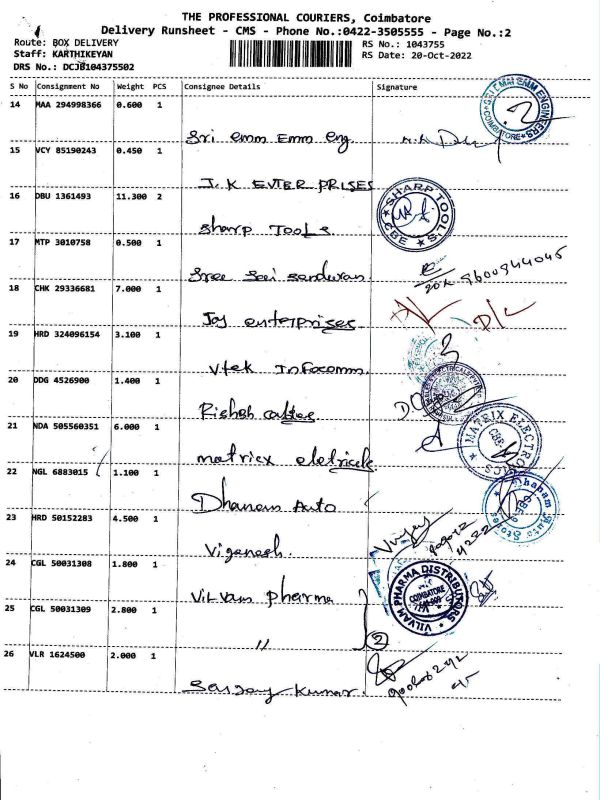 THE PROFESSIONAL COURIERS, Coimbatore
Delivery Runsheet - CMS - Phone No.:0422-3505555 - Page No.:2
Route: BOX DELIVERY
Staff: KARTHIKEYAN
DRS No.: DCJB104375502
RS No.: 1043755
RS Date: 20-Oct-2022
S No Consignment No Weight PCS Consignee Details Signature
14 MAA 294998366 0.600 1
Sri emm Emm eng.
SRI EMM EMM ENGINEERS COIMBATORE
15 VCY 85190243 0.450 1
J.K ENTER PRISES
16 DBU 1361493 11.300 2
sharp TOOLS
SHARP TOOLS CBE
17 MTP 3010758 0.500 1
Sree Sai
9600944045
18 CHK 29336681 7.000 1
Joy enterprises
D/C
19 HRD 324096154 3.100 1
Vtek Infocomm.
20 DDG 4526900 1.400 1
Rishab
21 NDA 505560351 6.000 1
matriex eletricels
MATRIX ELECTRONICS CBE
22 NGL 6883015 1.100 1
Dhanam Auto
Dhanam Auto Stores
23 HRD 50152283 4.500 1
Viganesh.
Vijay
24 CGL 50031308 1.800 1
Vilvam pharma
VILVAM PHARMA DISTRIBUTORS COIMBATORE
25 CGL 50031309 2.800 1
"
2
26 VLR 1624500 2.000 1
Sanjay Kumar.